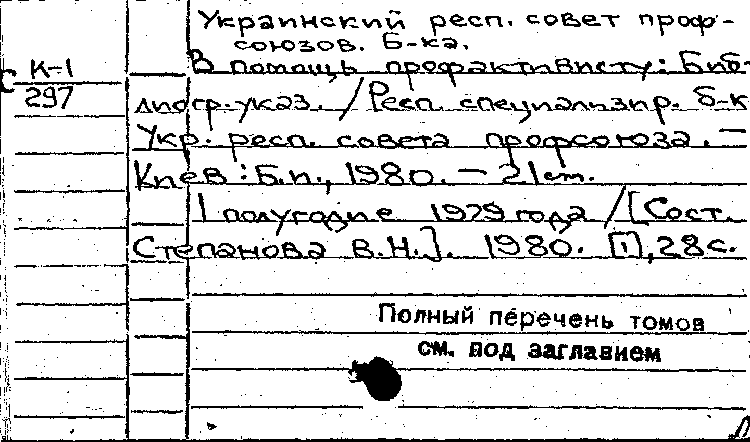 Украинский респ. совет проф-
союзов. Б-ка.
К-1
297
С
В помощь профактивисту: Биб-
лиогр. указ. / Респ. специализир. б-к
Укр. респ. совета профсоюза. —
Киев: Б.и., 1980. — 21 см.
I полугодие 1979 года / [Сост.
Степанова В.Н.]. 1980. [1], 28 с.
Полный перечень томов
см. под заглавием